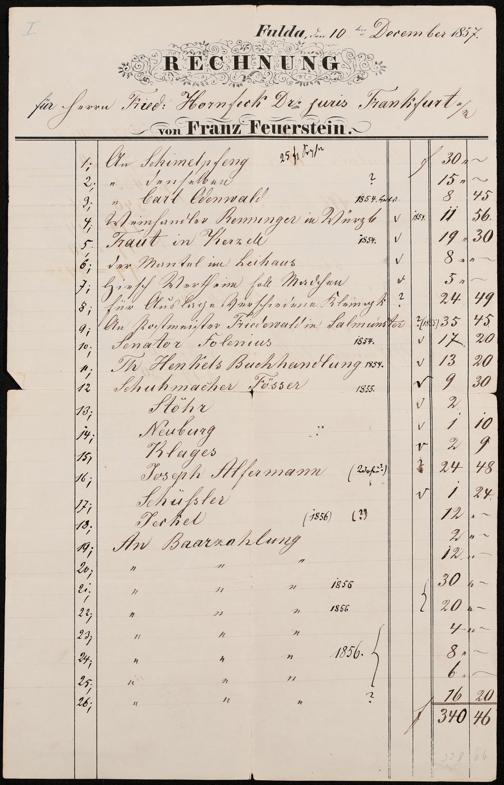 I.
Fulda, den 10ten December 1857.
RECHNUNG
für Herrn Fried: Hornfeck Dr: juris Frankfurt a/M
von Franz Feuerstein.
1, An Schimelpfeng 30 „ ~
2, „ denselben ? 15 „ ~
3, „ Carl Odenwald 1854. 8 45
4, Weinhandler Renninger in Würzb v 1854. 11 56
5 Traut in Kerzell 1854. v 19 30
6, der Mantel im Leihaus v 8 „ ~
7, Hirsch Wertheim v 5 „ ~
8, für Auslage Verschiedene ? 24 49
9, An Postmeister Friedewald in Salmünster ? (1855) 35 45
10, Senator Folenius 1854. v 17 20
11, Th. Henkels Buchhandlung 1854. v 13 20
12 Schuhmacher Fösser 1855. v 9 30
13, Stöhr v 2
14, Neuburg „ v 1 10
15, Klages v 2 9
16, Joseph Alfermann ? 24 48
17, Schüssler v 1 24
18, Jeckel (1856) (?) 12 „ ~
19, An Baarzahlung 2 „ ~
20, „ „ „ 12 „ ~
21, „ „ „ 1856 30 „ ~
22, „ „ „ 1856 20 „ ~
23, „ „ „ 4 „ ~
24, „ „ „ 1856. 8 „ ~
25, „ „ „ 6 „ ~
26, „ „ „ ? 16 20
f 340 46